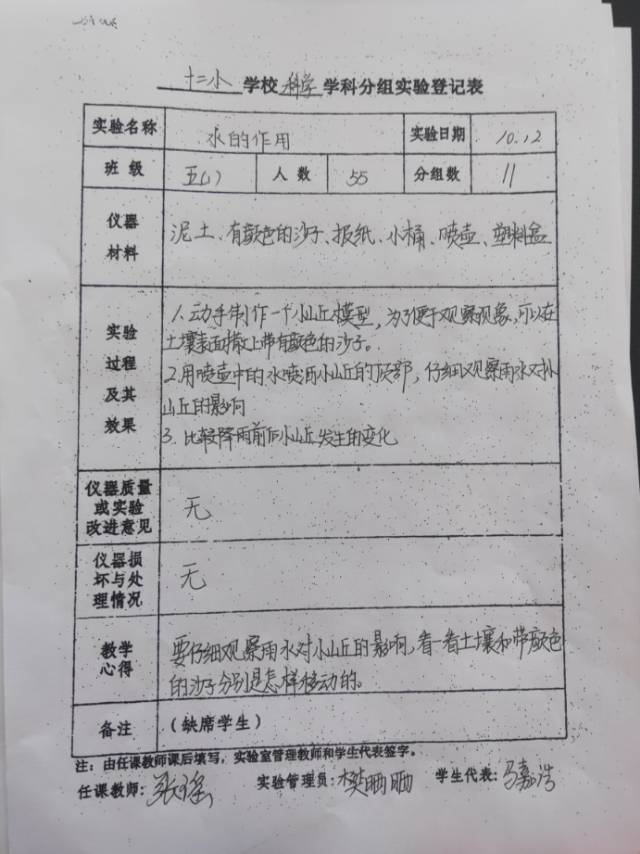 十二小学校科学学科分组实验登记表
实验名称 水的作用 实验日期 10.12
班级 五(1) 人数 55 分组数 11
仪器材料 泥土、有颜色的沙子、报纸、小桶、喷壶、塑料盒
实验过程及其效果
1.动手制作一个小山丘模型,为了便于观察现象,可以在
土壤表面撒上带有颜色的沙子。
2.用喷壶中的水喷洒小山丘的顶部,仔细观察雨水对小
山丘的影响
3.比较降雨前后小山丘发生的变化
仪器质量或实验改进意见 无
仪器损坏与处理情况 无
教学心得
要仔细观察雨水对小山丘的影响,看一看土壤和带颜色
的沙子分别是怎样移动的。
备注 (缺席学生)
注:由任课教师课后填写,实验室管理教师和学生代表签字。
任课教师:张瑶 实验管理员:樊晒晒 学生代表:马嘉浩